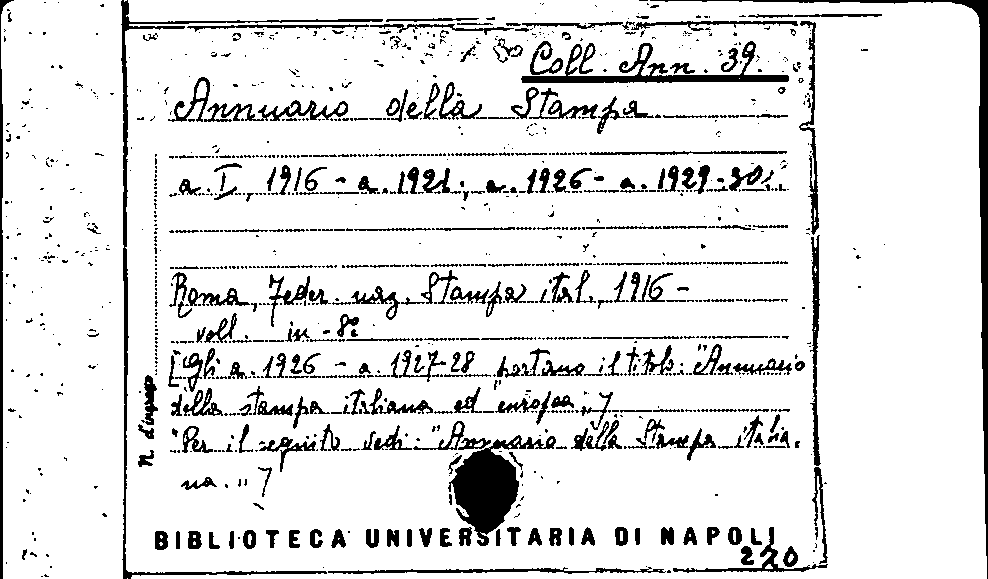 Coll. Ann. 39.
Annuario della Stampa
a. I, 1916 - a. 1921; a. 1926 - a. 1929-30.
Roma, Feder. naz. Stampa ital., 1916 -
voll. in -8°
[Gli a. 1926 - a. 1927-28 portano il titolo: "Annuario
della stampa italiana ed europea"]
"Per il seguito vedi: "Annuario della Stampa italia-
na."]
N. d'ingresso
BIBLIOTECA UNIVERSITARIA DI NAPOLI
270